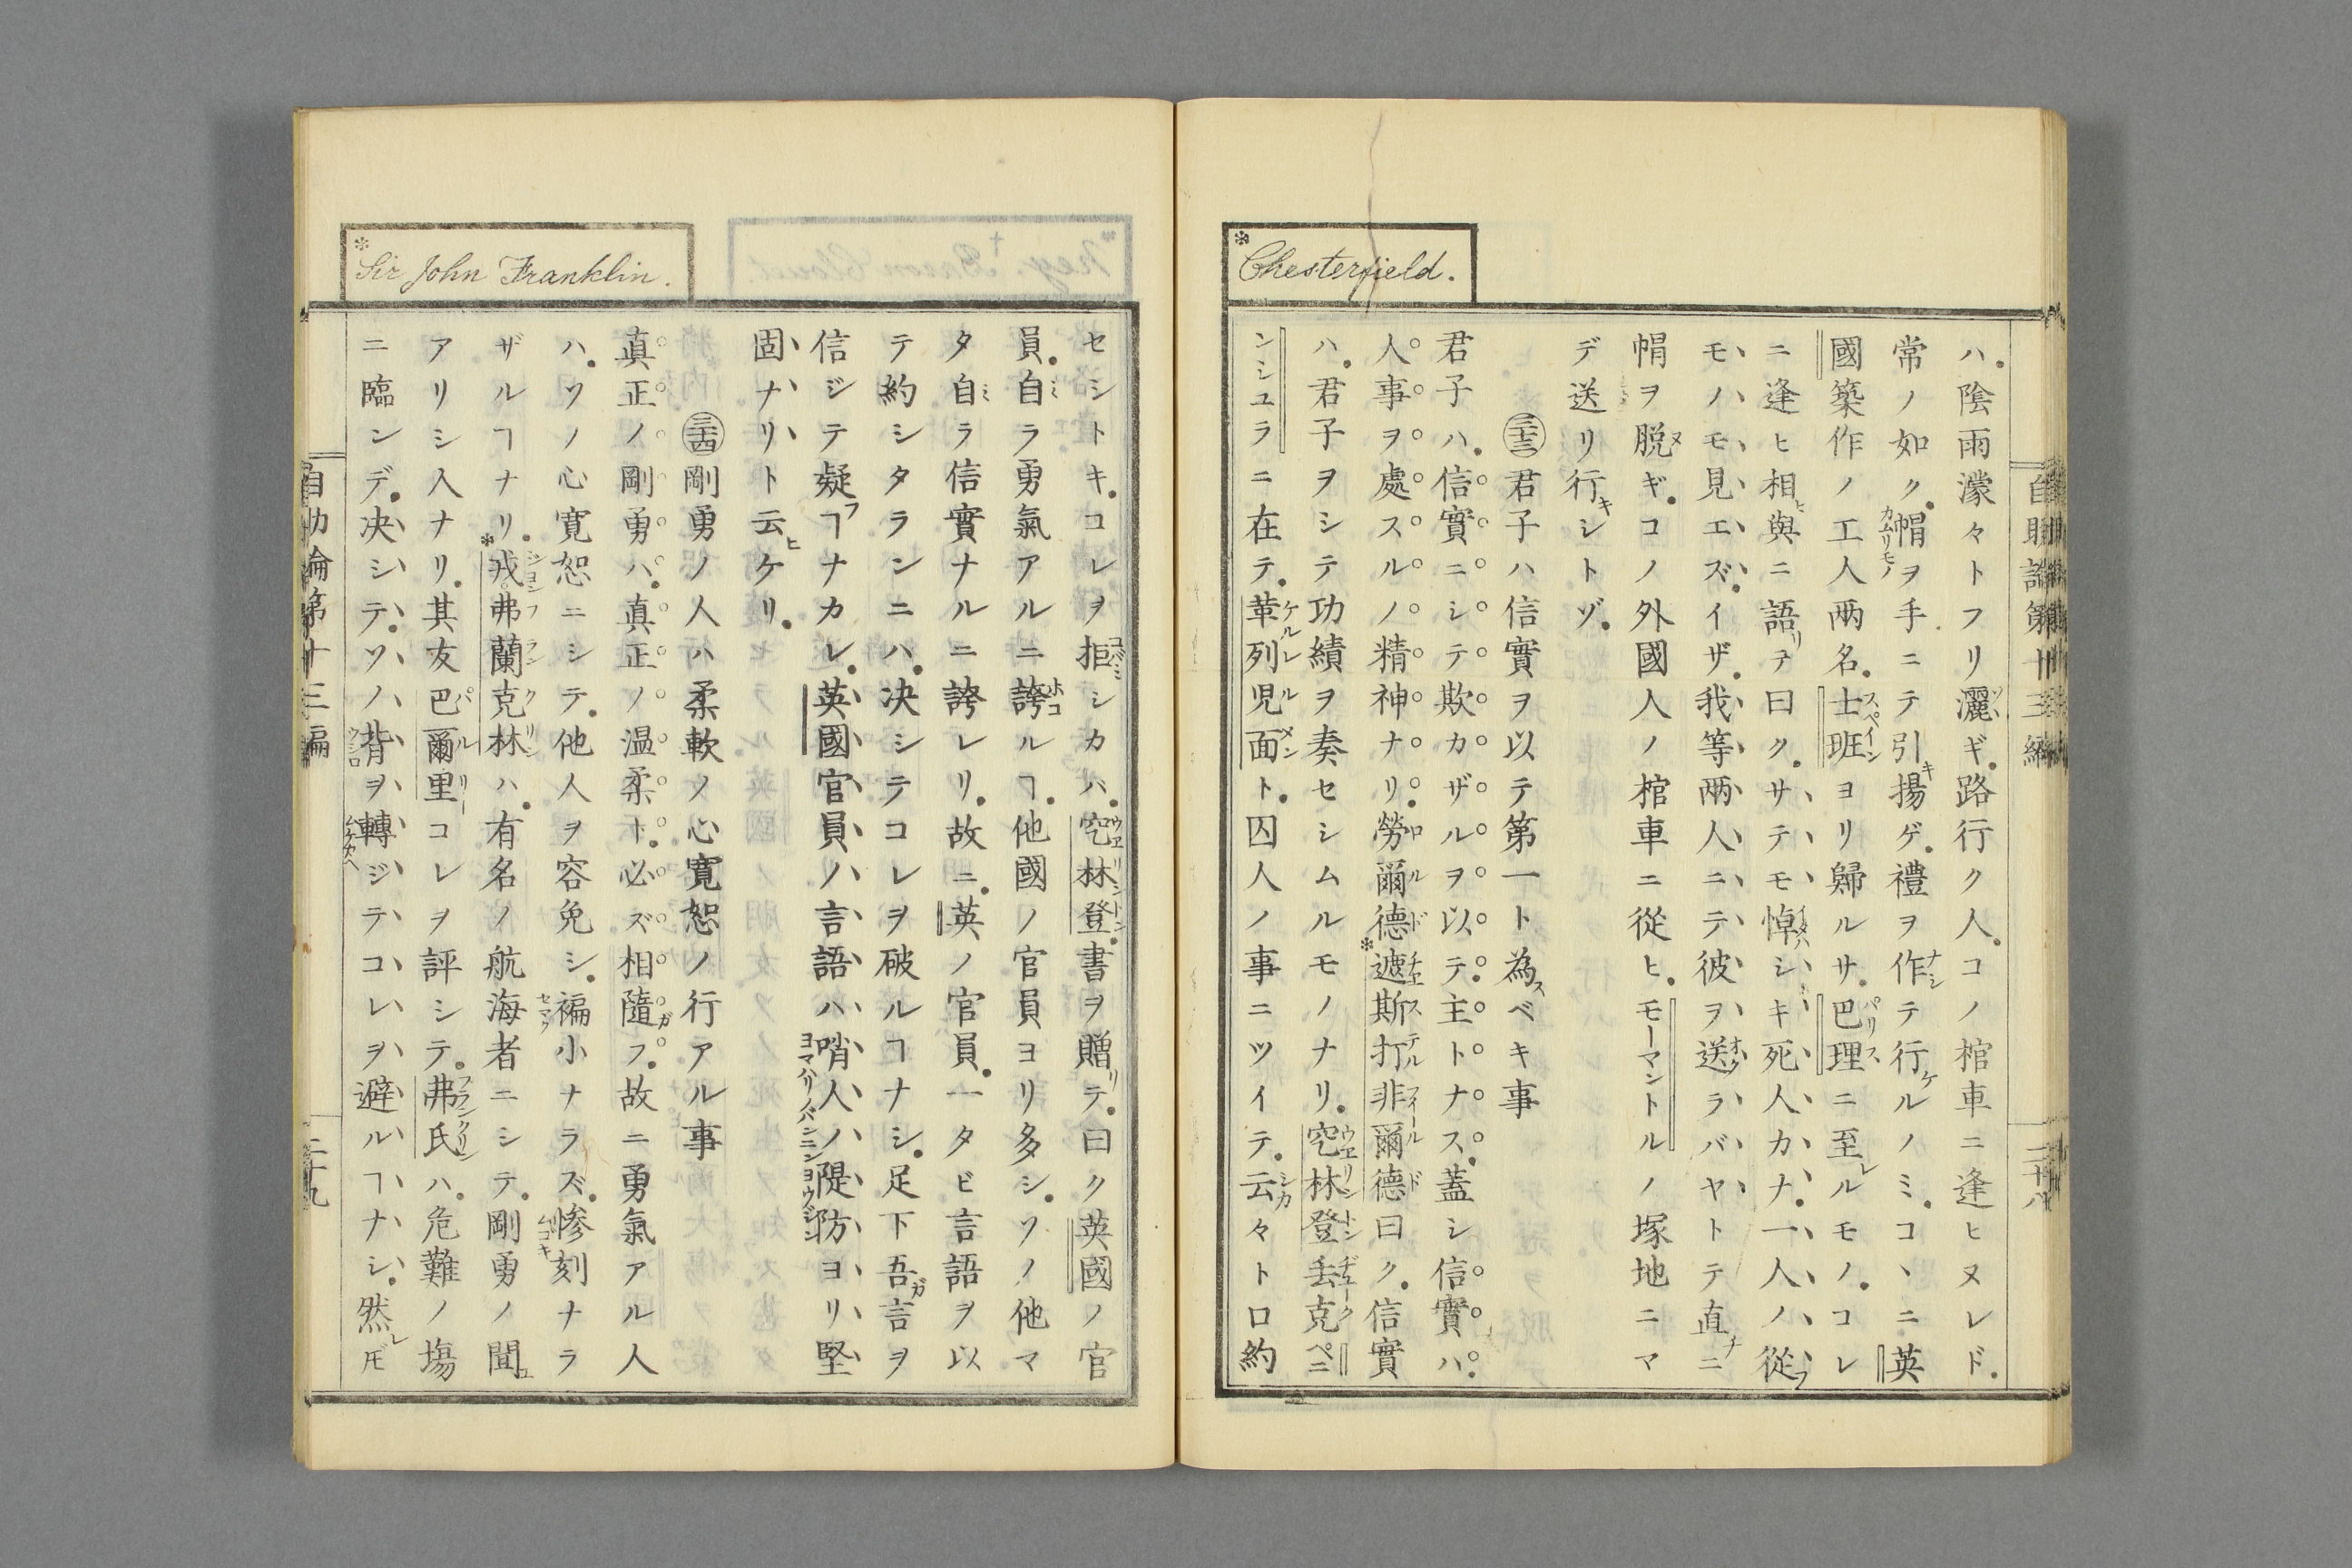 Chesterfield.
自助論第十三編
二十八
ハ。陰雨濛々トフリ灑ギ。路行ク人。コノ棺車ニ逢ヒヌレド。
常ノ如ク。帽ヲ手ニテ引揚ゲ。禮ヲ作テ行ルノミ。コヽニ英
國築作ノ工人兩名。士班ヨリ歸ルサ。巴理ニ至ルモノ。コレ
ニ逢ヒ相與ニ語テ曰ク。サテモ悼シキ死人カナ。一人ノ從
モノモ見エズ。イザ。我等兩人ニテ彼ヲ送ラバヤトテ直ニ
帽ヲ脱ギ。コノ外國人ノ棺車ニ從ヒ。モーマントルノ塚地ニマ
デ送リ行シトゾ。
三十三 君子ハ信實ヲ以テ第一ト為ベキ事
君子ハ。信實ニシテ欺カザルヲ以テ。主トナス。蓋シ信實ハ。
人事ヲ處スルノ精神ナリ。勞爾德遮斯打非爾德曰ク。信實
ハ。君子ヲシテ功績ヲ奏セシムルモノナリ。空林登丢克ペニ
ンシユラニ在テ。革列児面ト。囚人ノ事ニツイテ。云々ト口約
Sir John Franklin.
セシトキ。コレヲ拒シカバ。空林登。書ヲ贈テ。曰ク英國ノ官
員。自ラ勇氣アルニ誇ルヿ。他國ノ官員ヨリ多シ。ソノ他マ
タ自ラ信實ナルニ誇レリ。故ニ。英ノ官員。一タビ言語ヲ以
テ約シタランニハ。决シテコレヲ破ルヿナシ。足下吾言ヲ
信ジテ疑ヿナカレ。英國官員ノ言語ハ哨人ノ隄防ヨリ堅
固ナリト云ケリ。
三十四 剛勇ノ人ハ柔軟ノ心寛恕ノ行アル事
真正ノ剛勇ハ。真正ノ温柔ト。必ズ相隨フ。故ニ勇氣アル人
ハ。ソノ心寛恕ニシテ。他人ヲ容免シ。褊小ナラズ。惨刻ナラ
ザルヿナリ。戎弗蘭克林ハ。有名ノ航海者ニシテ。剛勇ノ聞
アリシ人ナリ。其友巴爾里コレヲ評シテ。弗氏ハ。危難ノ塲
ニ臨ンデ。决シテ。ソノ背ヲ轉ジテコレヲ避ルヿナシ。然𪜈
自助論第十三編
二十九